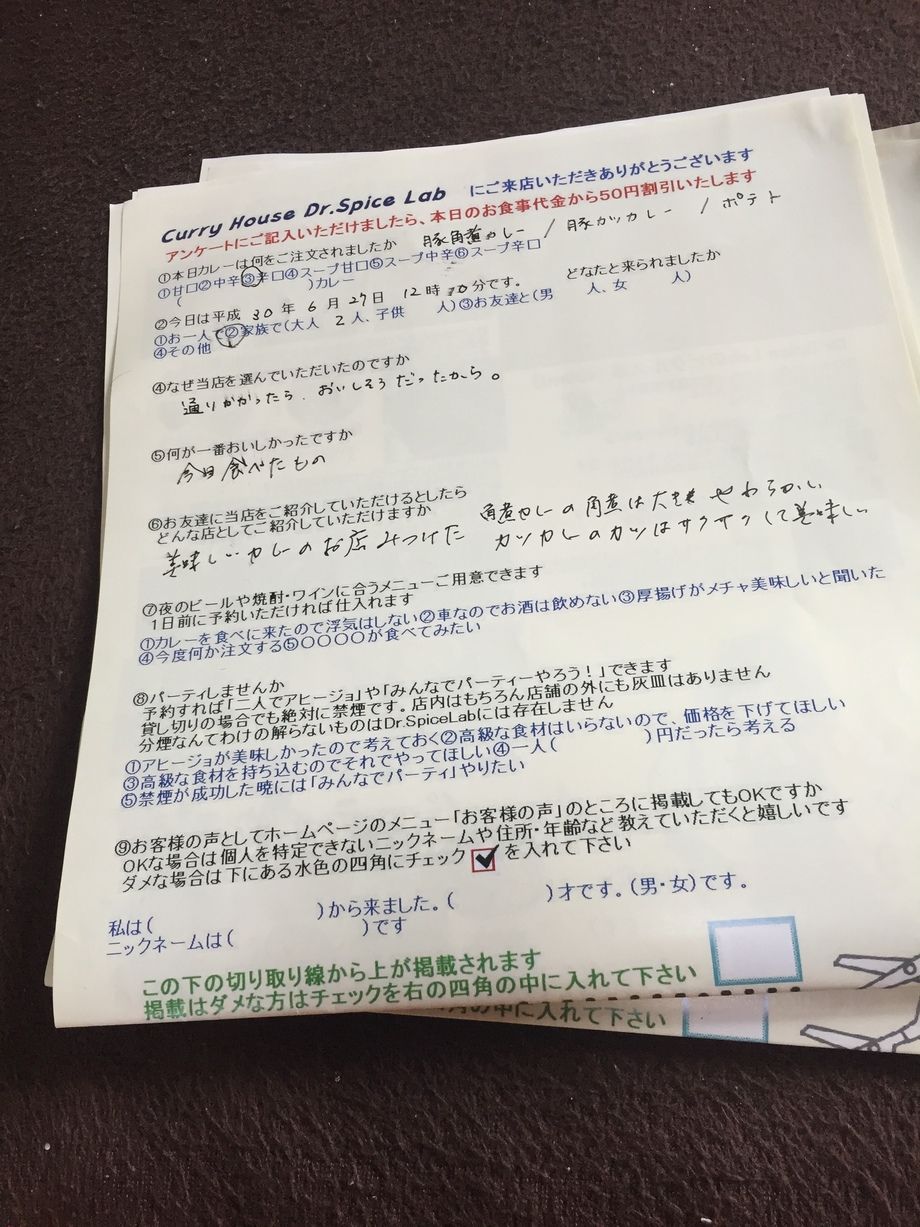 Curry House Dr.Spice Lab にご来店いただきありがとうございます
アンケートにご記入いただけましたら、本日のお食事代金から50円割引いたします
①本日カレーは何をご注文されましたか 豚角煮カレー / 豚カツカレー / ポテト
①甘口②中辛③辛口④スープ甘口⑤スープ中辛⑥スープ辛口
( )カレー
②今日は平成 30 年 6 月 27 日 12 時 分です。 どなたと来られましたか
①お一人で②家族で(大人 2 人、子供 人)③お友達と(男 人、女 人)
④その他
④なぜ当店を選んでいただいたのですか
通りかかったら、おいしそうだったから。
⑤何が一番おいしかったですか
今日食べたもの
⑥お友達に当店をご紹介していただけるとしたら
どんな店としてご紹介していただけますか
美味しいカレーのお店みつけた
角煮カレーの角煮は大きめ やわらかい
カツカレーのカツはサクサクして美味しい
⑦夜のビールや焼酎・ワインに合うメニューご用意できます
1日前に予約いただければ仕入れます
①カレーを食べに来たので浮気はしない②車なのでお酒は飲めない③厚揚げがメチャ美味しいと聞いた
④今度何か注文する⑤〇〇〇〇が食べてみたい
⑧パーティしませんか
予約すれば「二人でアヒージョ」や「みんなでパーティーやろう！」できます
貸し切りの場合でも絶対に禁煙です。店内はもちろん店舗の外にも灰皿はありません
分煙なんてわけの解らないものはDr.SpiceLabには存在しません
①アヒージョが美味しかったので考えておく②高級な食材はいらないので、価格を下げてほしい
③高級な食材を持ち込むのでそれでやってほしい④一人( )円だったら考える
⑤禁煙が成功した暁には「みんなでパーティ」やりたい
⑨お客様の声としてホームページのメニュー「お客様の声」のところに掲載してもOKですか
OKな場合は個人を特定できないニックネームや住所・年齢など教えていただくと嬉しいです
ダメな場合は下にある水色の四角にチェック を入れて下さい
私は( )から来ました。( )才です。(男・女)です。
ニックネームは( )です
この下の切り取り線から上が掲載されます
掲載はダメな方はチェックを右の四角の中に入れて下さい
の中に入れて下さい